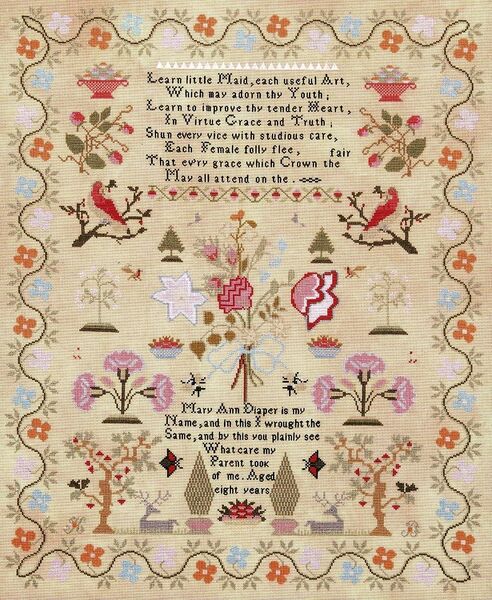 Learn little Maid, each useful Art,
Which may adorn thy Youth;
Learn to improve thy tender Heart,
In Virtue Grace and Truth;
Shun every vice with studious care,
Each Female folly flee, fair
That ev'ry grace which Crown the
May all attend on the.
Mary Ann Diaper is my
Name, and in this I wrought the
Same, and by this you plainly see
What care my
Parent took
of me. Aged
eight years